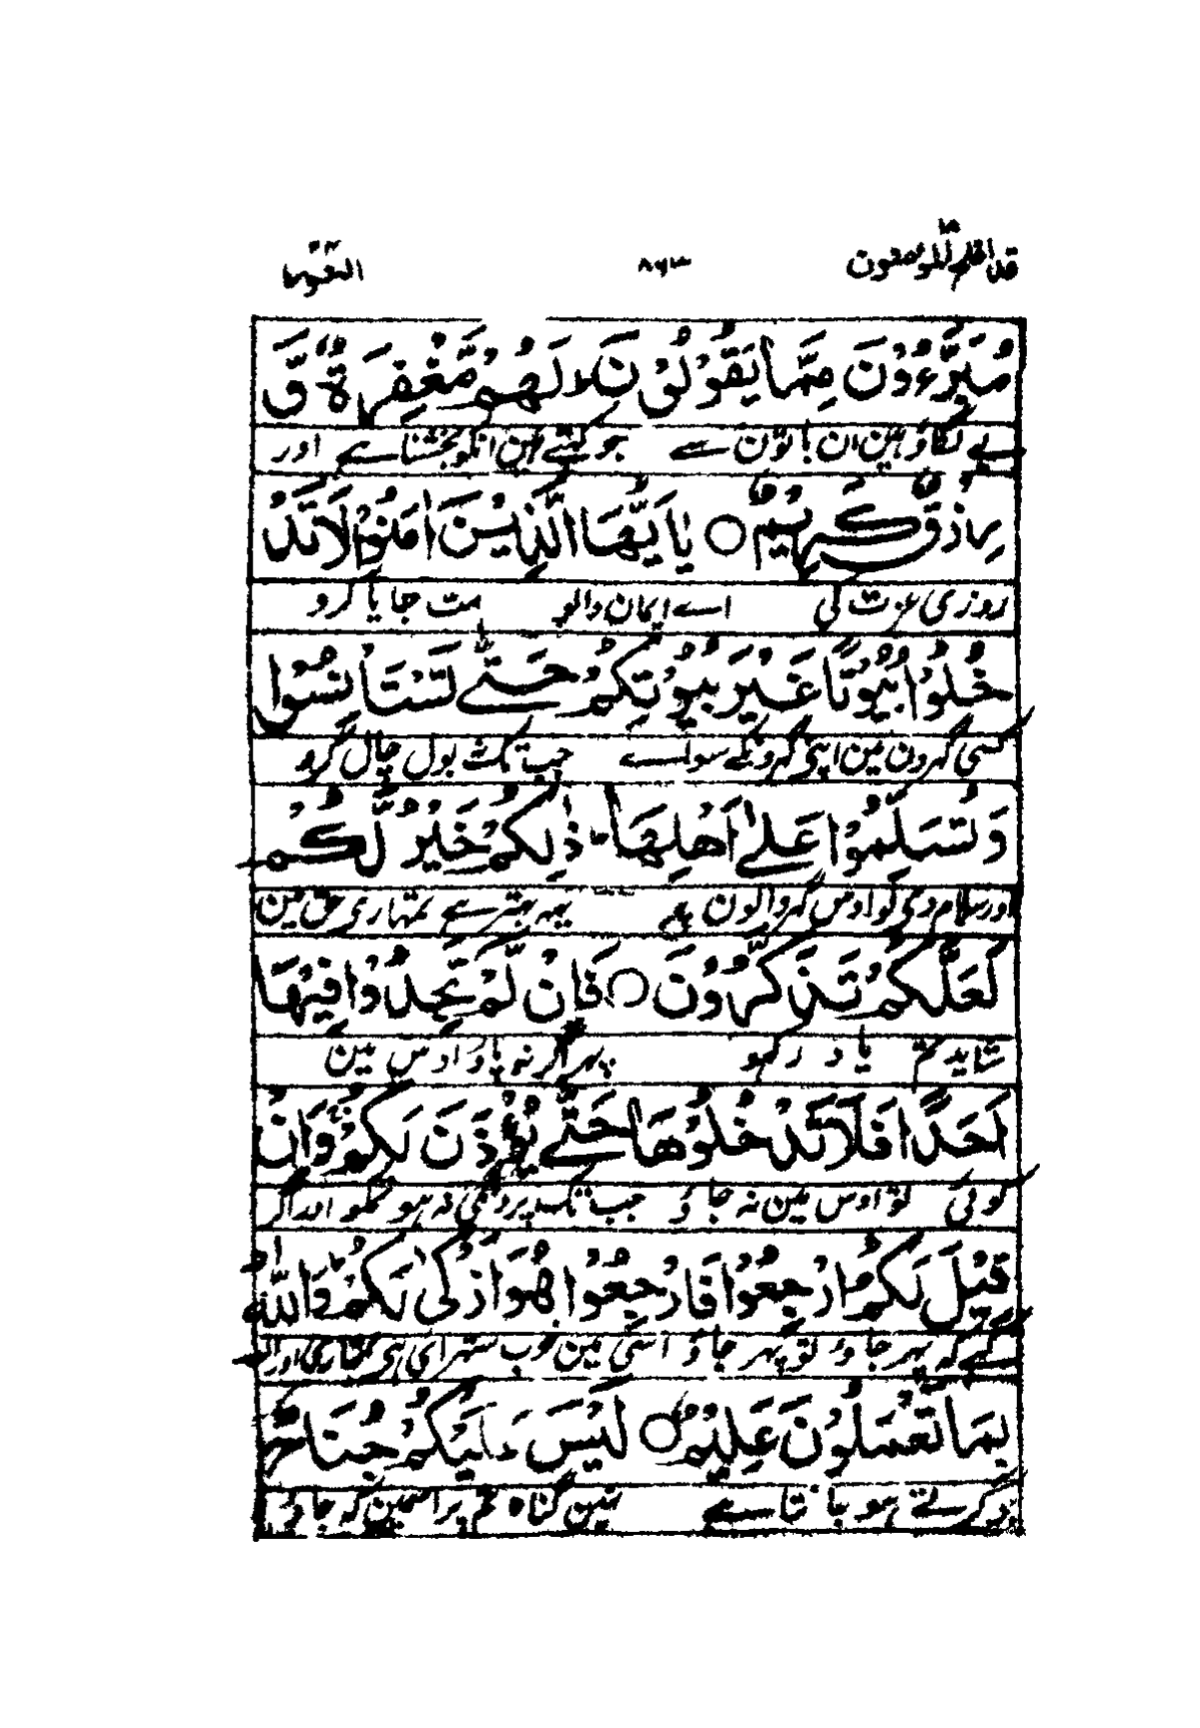 قد افلح المؤمنون ١٨ ٨٦٣ النور ٢٤
مُبَرَّءُوْنَ مِمَّا يَقُوْلُوْنَ لَهُمْ مَّغْفِرَةٌ وَّ
بے لگاؤ ہین ان باتون سے جو کہتے ہین انکو بخشنا ہے اور
رِزْقٌ كَرِيْمٌ ○ يٰاَيُّهَا الَّذِيْنَ اٰمَنُوْا لَا تَدْ
روزی عزت کی اے ایمان والو مت جایا کرو
خُلُوْا بُيُوْتًا غَيْرَ بُيُوْتِكُمْ حَتّٰے تَسْتَاْنِسُوْا
کسی گہرون مین اپنی گہرونکے سواے جب تک نہ بول چال کرو
وَتُسَلِّمُوْا عَلٰے اَهْلِهَا ذٰلِكُمْ خَيْرٌ لَّكُمْ
اور سلام دی لو اوس گہر والون پر یہہ بہتر ہے تمہاری حق مین
لَعَلَّكُمْ تَذَكَّرُوْنَ ○ فَاِنْ لَّمْ تَجِدُوْا فِيْهَا
شاید تم یاد رکہو پہر اگر نہ پاؤ اوس مین
اَحَدًا فَلَا تَدْخُلُوْهَا حَتّٰے يُؤْذَنَ لَكُمْ وَاِنْ
کوئی تو اوس مین نہ جاؤ جب تک پروانگی نہ ہو تمکو اور اگر
قِيْلَ لَكُمُ ارْجِعُوْا فَارْجِعُوْا هُوَ اَزْكٰى لَكُمْ وَاللّٰهُ
کہے کہ پہر جاؤ تو پہر جاؤ اسی مین خوب ستہرائی ہی تمہاری اور اللہ
بِمَا تَعْمَلُوْنَ عَلِيْمٌ ○ لَيْسَ عَلَيْكُمْ جُنَاحٌ
جو کرتے ہو جانتا ہے نہین گناہ تم پر اسمین کہ جاؤ